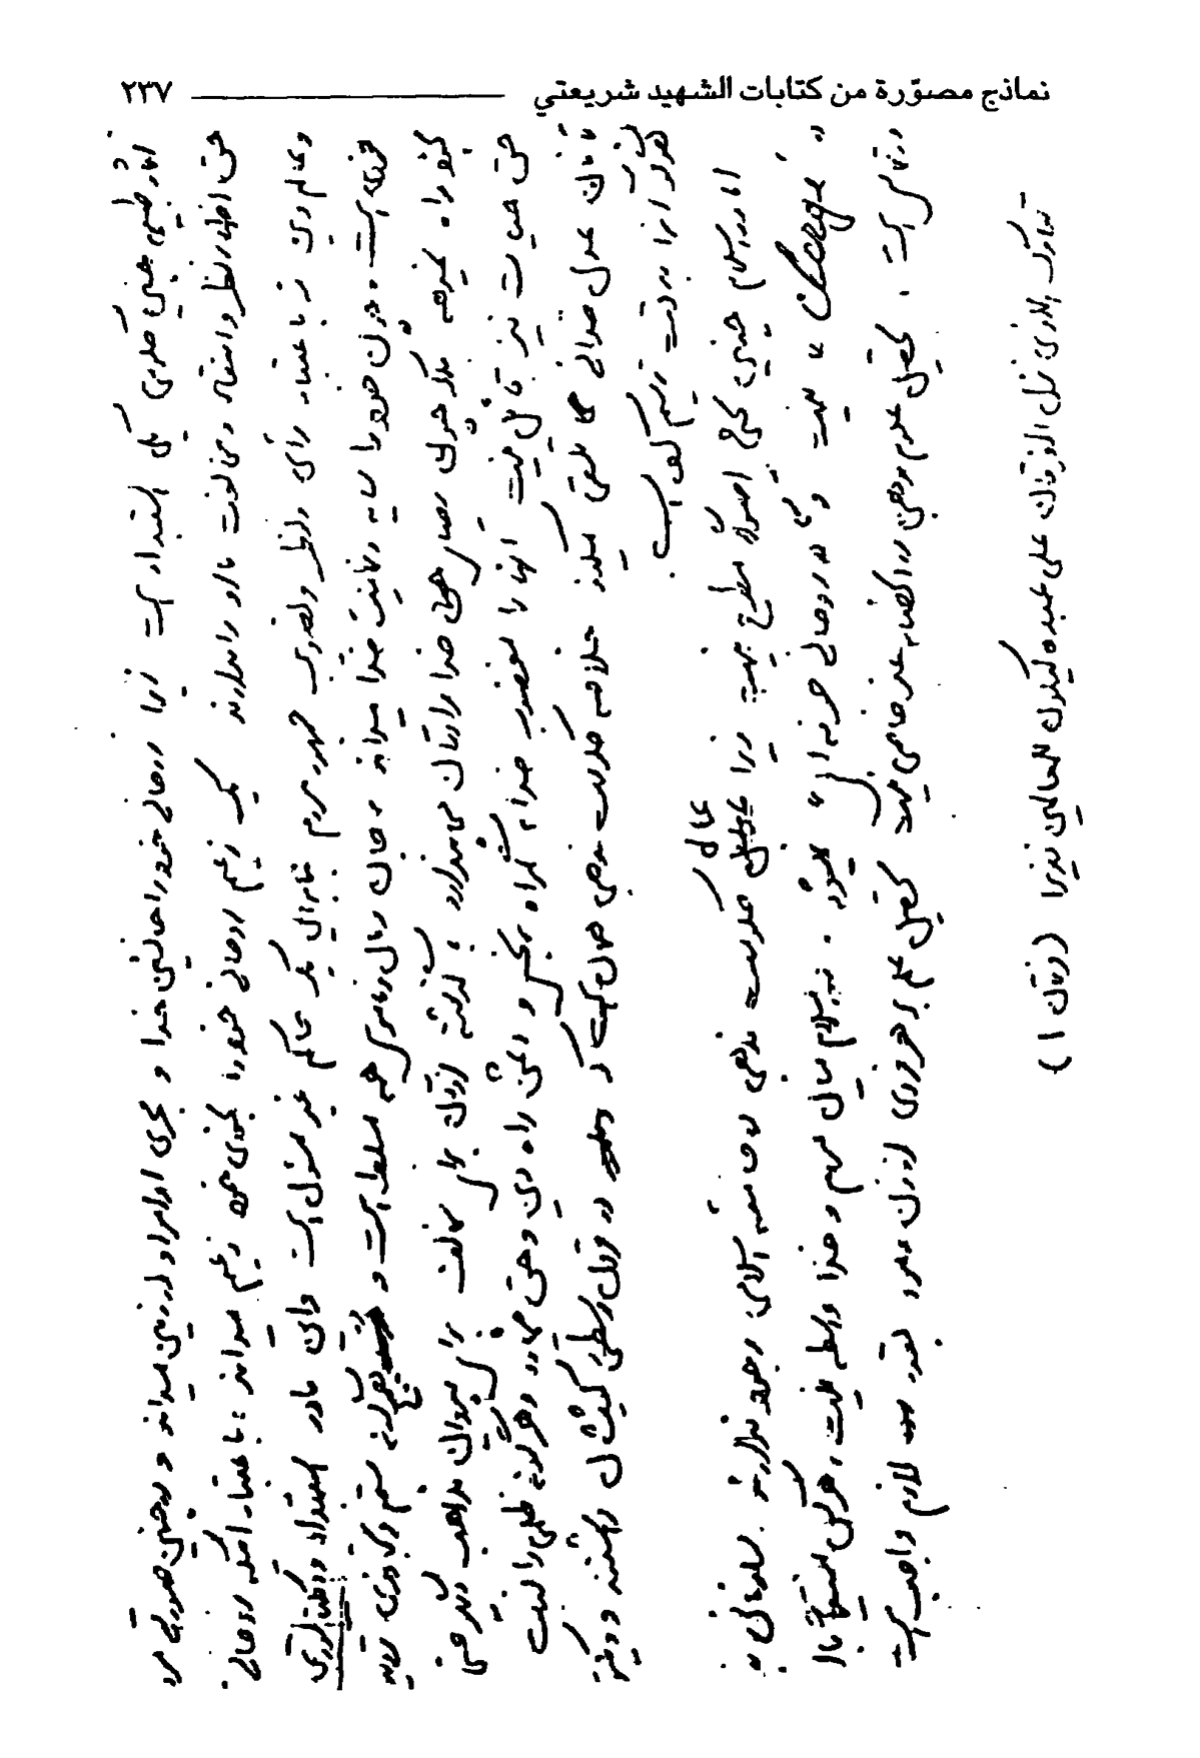 نماذج مصوّرة من كتابات الشهيد شريعتي ٢٣٧
آثار طبیعی چنین حکومتی یکی استبداد است زیرا روحانی خود را جانشین خدا و مجری اوامر او در زمین میداند و در چنین صورتی مردم
حق اظهار نظر و انتقاد و مخالفت با او را ندارند یک زعیم روحانی خود را بخودی خود زعیم میداند ، باعتبار اینکه روحانی است
و عالم دین نه باعتبار رأی و نظر و تصویب جمهور مردم بنابراین یک حاکم غیر مسئول است و این مادر استبداد و دیکتاتوری
فردی است ، و چون خود را سایه و نماینده خدا میداند بر جان و مال و ناموس همه مسلط است و هیچ گونه ستم و تجاوزی تردید
بخود راه نمیدهد بلکه رضای خدا را در آن می‌پندارد ، گذشته از آن برای مخالف برای پیروان مذاهب دیگر حتی
حق حیات نیز قائل نیست آنها را مغضوب خدا ، گمراه ، نجس و دشمن راه دین و حق میشمارد و هرگونه ظلمی را نسبت
به آنان عدل خدائی تلقی میکند خلاصه حکومت مذهبی همان است که در قرون وسطی کشیشان داشتند و ویکتور
هوگو آنرا بدقت ترسیم کرده است .
اما در اسلام چنین بحثی اصولاً مطرح نیست زیرا عمال حکومت مذهبی در جامعه اسلامی وجود ندارند . سازمانی به
Clergé نیست و روحانی حرفه‌ای نمیشود . در اسلام میان مردم و خدا واسطه نیست ، هرکس مستقیماً با او
در تماس است ، تحصیل علوم مذهبی در انحصار عده خاصی نیست تحصیل علم بر هر فردی از زن و مرد بقدر لازم واجب است
تبارك الذی نزل الفرقان علی عبده لیكون للعالمین نذیرا (فرقان ١)